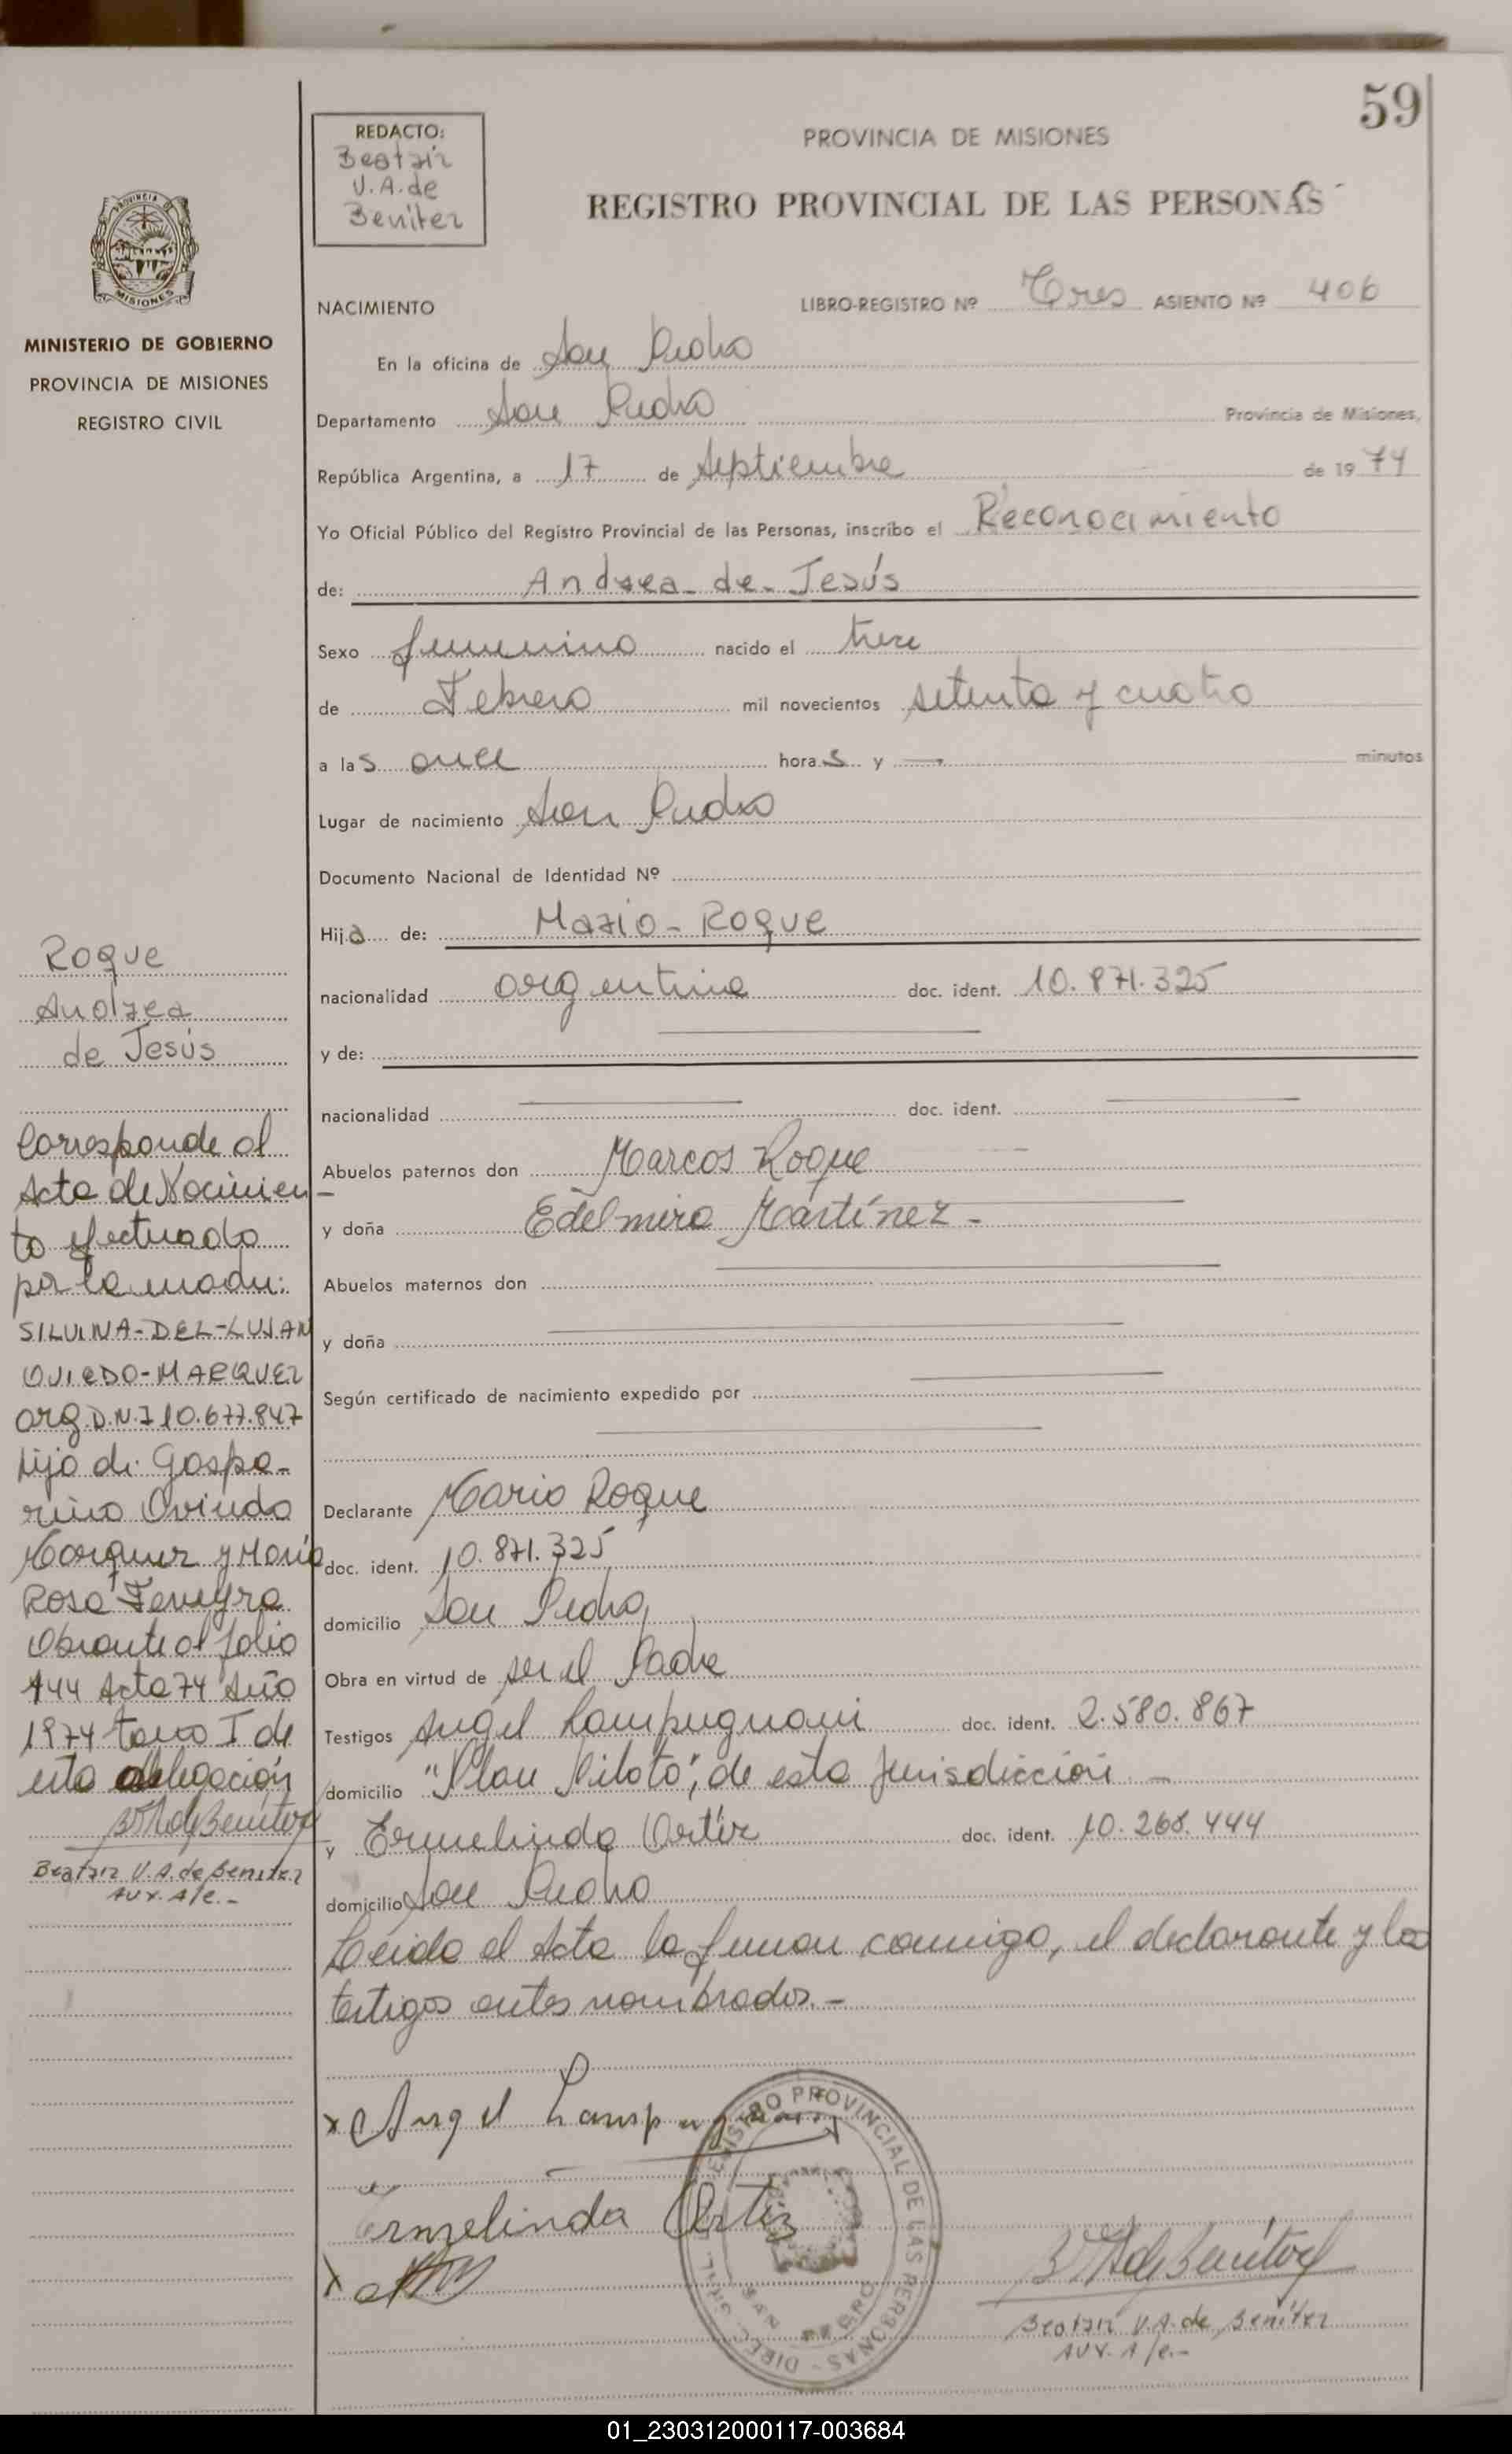 59
REDACTO:
Beatriz
V.A. de
Benitez
PROVINCIA DE MISIONES
REGISTRO PROVINCIAL DE LAS PERSONAS
PROVINCIA DE
MISIONES
MINISTERIO DE GOBIERNO
PROVINCIA DE MISIONES
REGISTRO CIVIL
NACIMIENTO LIBRO-REGISTRO Nº Tres ASIENTO Nº 406
En la oficina de San Pedro
Departamento San Pedro Provincia de Misiones,
República Argentina, a 17 de Septiembre de 1974
Yo Oficial Público del Registro Provincial de las Personas, inscribo el Reconocimiento
de: Andrea de Jesús
Sexo femenino nacido el trece
de Febrero mil novecientos setenta y cuatro
a las once horas y — minutos
Lugar de nacimiento San Pedro
Documento Nacional de Identidad Nº
Hija de: Mario - Roque
nacionalidad argentina doc. ident. 10.871.325
y de:
nacionalidad doc. ident.
Abuelos paternos don Marcos Roque
y doña Edelmira Martínez -
Abuelos maternos don
y doña
Según certificado de nacimiento expedido por
Declarante Mario Roque
doc. ident. 10.871.325
domicilio San Pedro,
Obra en virtud de ser el Padre
Testigos Angel Lampugnani doc. ident. 2.580.867
domicilio "Plan Piloto", de esta jurisdicción -
y Ermelinda Ortíz doc. ident. 10.268.444
domicilio San Pedro
Leida el Acta la firman conmigo, el declarante y los
testigos antes nombrados.-
Roque
Andrea
de Jesús
Corresponde al
Acta de Nacimien-
to efectuado
por la madre:
SILVINA-DEL-LUJAN
OVIEDO-MARQUEZ
arg. D.N.I 10.677.847
hija de Gaspa-
rino Oviedo
Marquez y María
Rosa Ferreyra
Obrante al folio
144 Acta 74 Año
1974 tomo I de
esta delegación
B.V.A.deBenitez
Beatriz V.A. de Benitez
AUX. A/C.-
x Angel Lampugnani
Ermelinda Ortiz
x
REGISTRO PROVINCIAL DE LAS PERSONAS - DIREC. GRAL. DEL
SAN PEDRO
B.V.A.deBenitez
Beatriz V.A. de Benitez
AUX. A/C.-
01_230312000117-003684